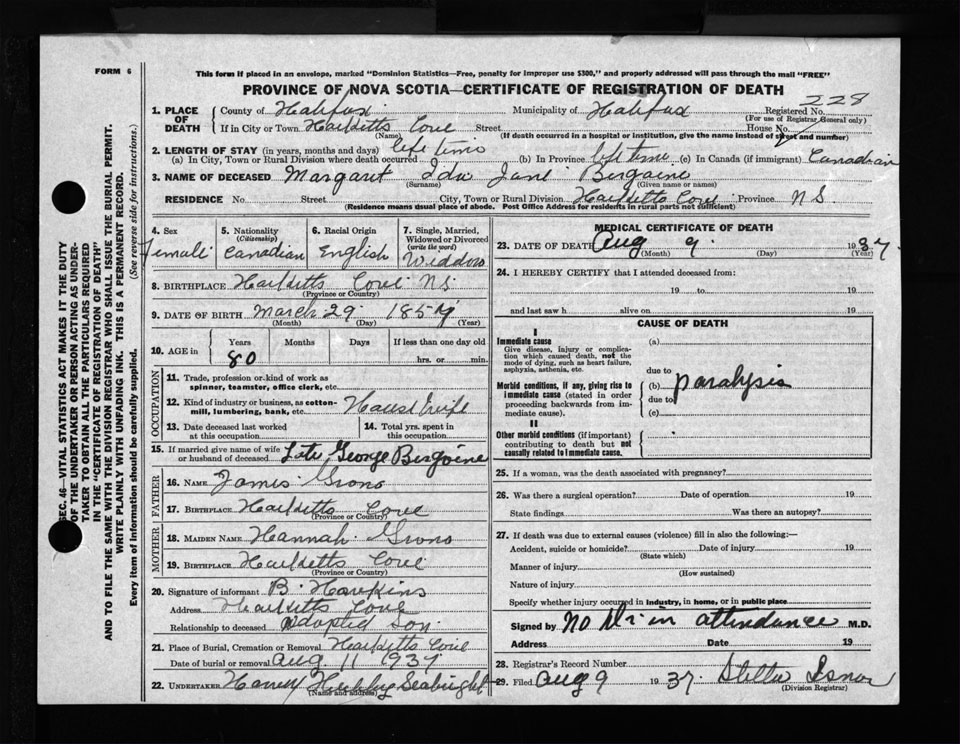 FORM 6
This form if placed in an envelope, marked "Dominion Statistics—Free, penalty for improper use $300," and properly addressed will pass through the mail "FREE"
PROVINCE OF NOVA SCOTIA—CERTIFICATE OF REGISTRATION OF DEATH
SEC. 46—VITAL STATISTICS ACT MAKES IT THE DUTY
OF THE UNDERTAKER OR PERSON ACTING AS UNDER-
TAKER TO OBTAIN ALL THE PARTICULARS REQUIRED
IN THE "CERTIFICATE OF REGISTRATION OF DEATH"
AND TO FILE THE SAME WITH THE DIVISION REGISTRAR WHO SHALL ISSUE THE BURIAL PERMIT.
WRITE PLAINLY WITH UNFADING INK. THIS IS A PERMANENT RECORD.
Every item of Information should be carefully supplied. (See reverse side for instructions.)
1. PLACE OF DEATH County of Halifax Municipality of Halifax Registered No. 228
(For use of Registrar General only)
If in City or Town Hacketts Cove Street House No.
(Name) (If death occurred in a hospital or institution, give the name instead of street and number)
2. LENGTH OF STAY (in years, months and days) life time
(a) In City, Town or Rural Division where death occurred (b) In Province life time (c) In Canada (if immigrant) Canadian
3. NAME OF DECEASED Margaret Ida Jane Bergoine
(Surname) (Given name or names)
RESIDENCE No. Street City, Town or Rural Division Hacketts Cove Province N.S.
(Residence means usual place of abode. Post Office Address for residents in rural parts not sufficient)
4. Sex Female
5. Nationality (Citizenship) Canadian
6. Racial Origin English
7. Single, Married, Widowed or Divorced (write the word) Widdow
8. BIRTHPLACE Hacketts Cove N.S.
(Province or Country)
9. DATE OF BIRTH March 29 1857
(Month) (Day) (Year)
10. AGE in Years 80 Months Days If less than one day old hrs. or min.
OCCUPATION
11. Trade, profession or kind of work as spinner, teamster, office clerk, etc.
12. Kind of industry or business, as cotton-mill, lumbering, bank, etc. House Wife
13. Date deceased last worked at this occupation
14. Total yrs. spent in this occupation
15. If married give name of wife or husband of deceased Late George Bergoine
FATHER
16. NAME James Grono
17. BIRTHPLACE Hacketts Cove
(Province or Country)
MOTHER
18. MAIDEN NAME Hannah Grono
19. BIRTHPLACE Hacketts Cove
(Province or Country)
20. Signature of informant B. Hawkins
Address Hacketts Cove
Relationship to deceased Adopted Son
21. Place of Burial, Cremation or Removal Hacketts Cove
Date of burial or removal Aug 11 1937
22. UNDERTAKER Seabright
(Name and address)
MEDICAL CERTIFICATE OF DEATH
23. DATE OF DEATH Aug 9 1937
(Month) (Day) (Year)
24. I HEREBY CERTIFY that I attended deceased from:
19 to 19
and last saw h alive on 19
CAUSE OF DEATH
I
Immediate cause
Give disease, injury or complication which caused death, not the mode of dying, such as heart failure, asphyxia, asthenia, etc.
(a)
due to
Morbid conditions, if any, giving rise to immediate cause (stated in order proceeding backwards from immediate cause).
(b) paralysis
due to
(c)
II
Other morbid conditions (if important) contributing to death but not causally related to immediate cause.
25. If a woman, was the death associated with pregnancy?
26. Was there a surgical operation? Date of operation 19
State findings Was there an autopsy?
27. If death was due to external causes (violence) fill in also the following:—
Accident, suicide or homicide? Date of injury 19
(State which)
Manner of injury
(How sustained)
Nature of injury
Specify whether injury occurred in industry, in home, or in public place
Signed by No Dr in attendance M.D.
Address Date 19
28. Registrar's Record Number
29. Filed Aug 9 1937 Stella Isnor
(Division Registrar)